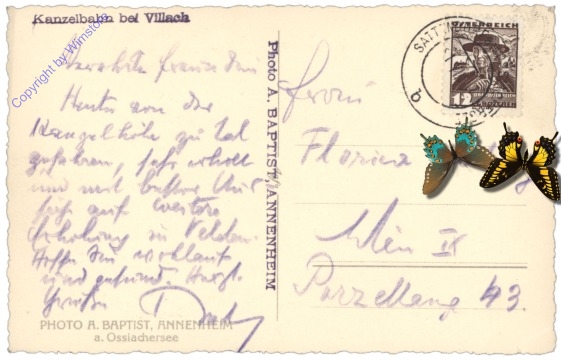 Kanzelbahn bei Villach
Copyright by Wimstore
Verehrte
Heute von der
Kanzelhöhe zu Tal
gefahren, sehr erholt
und mit bester Aus
sicht auf weitere
Erholung in Velden.
Hoffe Sie wohlauf
und gesund. Herzl.
Grüße
PHOTO A. BAPTIST, ANNENHEIM
a. Ossiachersee
Photo A. BAPTIST, ANNENHEIM
SATT
ÖSTERREICH
12
GROSCHEN
Frau
Wien IX
Porzellang 43.